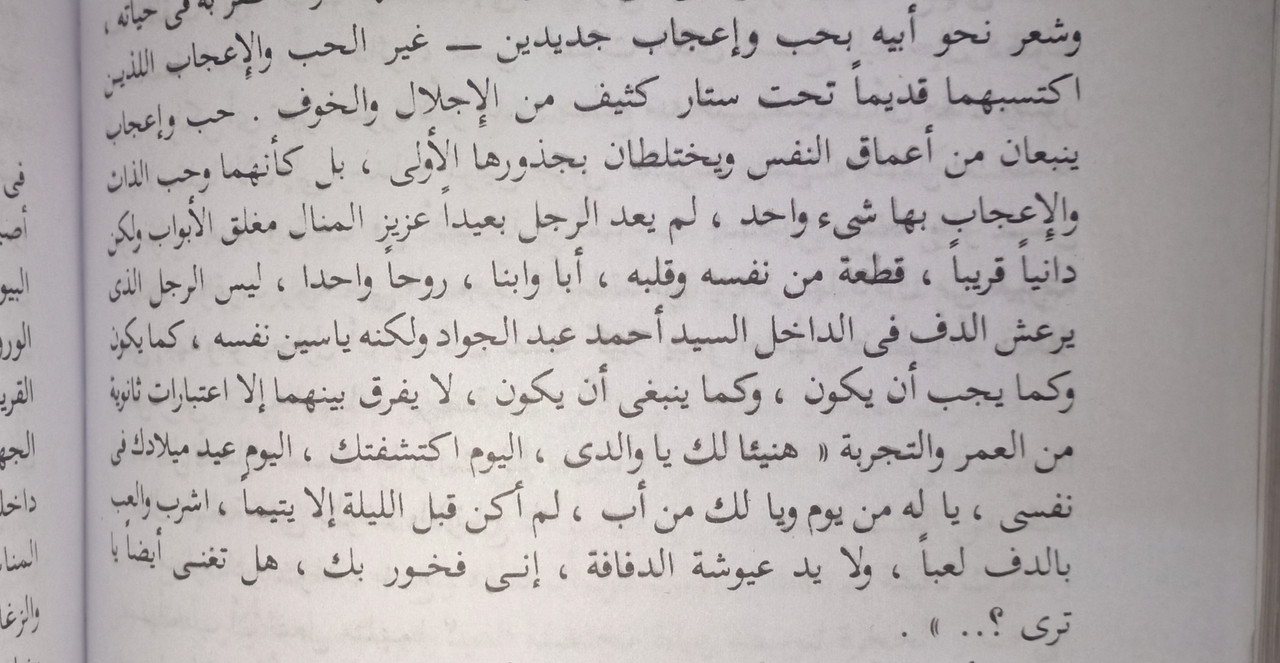 به فى حياته ،
وشعر نحو أبيه بحب وإعجاب جديدين — غير الحب والإعجاب اللذين
اكتسبهما قديماً تحت ستار كثيف من الإجلال والخوف . حب وإعجاب
ينبعان من أعماق النفس ويختلطان بجذورها الأولى ، بل كأنهما وحب الذان
والإعجاب بها شىء واحد ، لم يعد الرجل بعيداً عزيز المنال مغلق الأبواب ولكن
دانياً قريباً ، قطعة من نفسه وقلبه ، أبا وابنا ، روحاً واحدا ، ليس الرجل الذى
يرعش الدف فى الداخل السيد أحمد عبد الجواد ولكنه ياسين نفسه ، كما يكون
وكما يجب أن يكون ، وكما ينبغى أن يكون ، لا يفرق بينهما إلا اعتبارات ثانوية
من العمر والتجربة « هنيئا لك يا والدى ، اليوم اكتشفتك ، اليوم عيد ميلادك فى
نفسى ، يا له من يوم ويا لك من أب ، لم أكن قبل الليلة إلا يتيماً ، اشرب والعب
بالدف لعباً ، ولا يد عيوشة الدفافة ، إنى فخور بك ، هل تغنى أيضاً يا
ترى ؟.. » .
فى